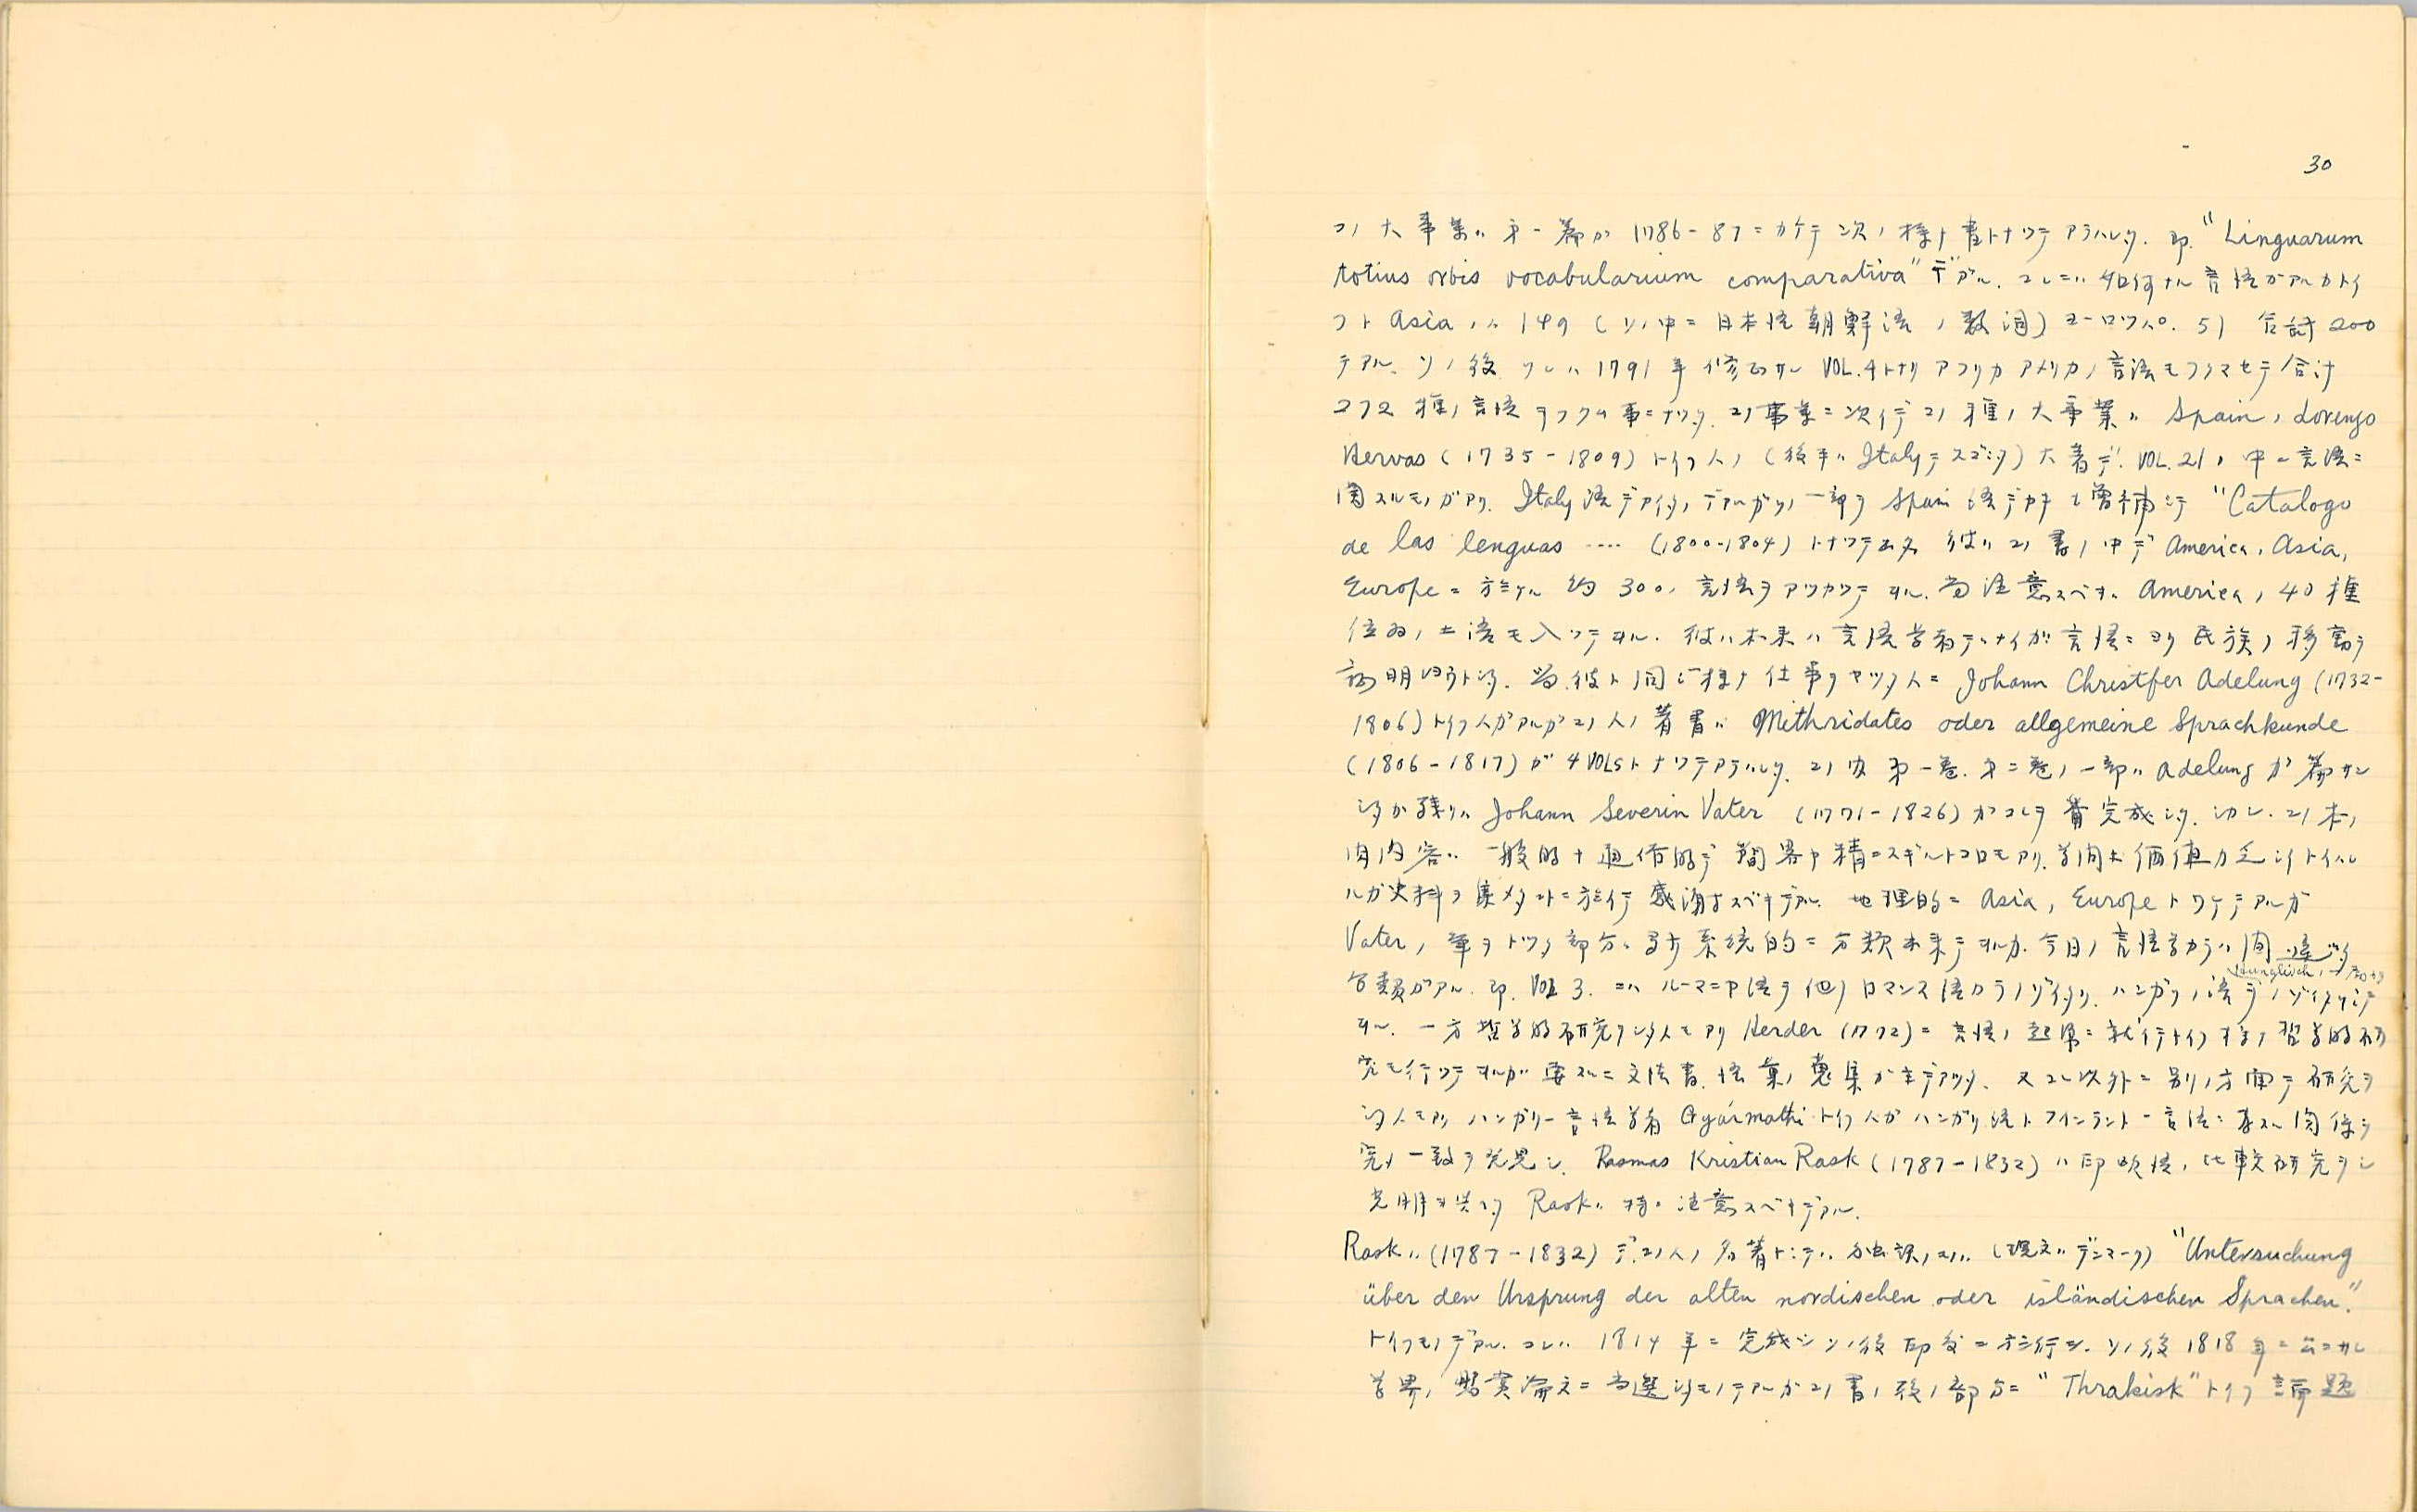 30
コノ大事業ハ第一篇ガ 1786-87ニカケテ次ノ様ナ書トナツテアラハレタ. 即 "Linguarum
totius orbis vocabularium comparativa" デアル. コレニハ如何ナル言語ガアルカトイ
フト Asia ノハ 149 (ソノ中ニ日本語朝鮮語ノ数詞) ヨーロツパ. 51 合計 200
デアル. ソノ後ソレハ 1791 年修正サレ VOL.4トナリ アフリカ アメリカノ言語モフクマセテ合計
272 種ノ言語ヲフクム事ニナツタ. コノ事業ニ次イデコノ種ノ大事業ハ Spain, Lorenzo
Hervas (1735-1809) トイフ人ノ (後年ハ Italyデスゴシタ) 大著デ. VOL.21ノ中ニ言語ニ
関スルモノガアリ. Italy語デアツタノデアルガソノ一部ヲ Spain 語デカキ 増補シテ "Catalogo
de las lenguas .... (1800-1804) トナツテ 彼ハコノ書ノ中デ America, Asia,
Europe ニ於ケル約 300ノ言語ヲアツカツテヰル. 尚注意スベキハ America ノ 40 種
位ノ土語モ入ツテヰル. 彼ハ本来ハ言語学者デハナイガ言語ニヨリ民族ノ移動ヲ
証明シヨウトシタ. 尚彼ト同ジ様ナ仕事ヲヤツタ人ニ Johann Christfer Adelung (1732-
1806) トイフ人ガアルガコノ人ノ著書ハ Mithridates oder allgemeine Sprachkunde
(1806-1817) ガ 4 VOLSトナツテアラハレタ. コノ内第一巻. 第二巻ノ一部ハ Adelung ガ篇サン
シタガ残リハ Johann Severin Vater (1771-1826) ガコレヲ完成シタ. 然シ. コノ本ノ
内容ハ一般的ナ通俗的デ簡略ヤ精ニスギルトコロモアリ. 学問上価値ガ乏シイトイハレ
ルガ史料ヲ集メタコトニ於イテ感謝スベキデアル. 地理的ニ Asia, Europe トワケテアルガ
Vater ノ筆ヲトツタ部分ハ 系統的ニ分類出来テヰルガ. 今日ノ言語学カラハ間違ツタ
分類ガアル. 即. VOL 3. ニハ ルーマニヤ語ヲ他ノロマンス語カラノゾイタリ. ハンガリノ語ヲノゾイタリシテ
ヰル. 一方哲学的研究ヲシタ人モアリ Herder (1772) ニ言語ノ起原ニ就イテトイフ様ナ哲学的研
究モ行ツテヰルガ要スルニ文法書. 語彙ノ蒐集ガ主デアツタ. 又コレ以外ニ別ノ方面デ研究ヲ
シタ人モアリ ハンガリー言語学者 Gyármathi トイフ人ガハンガリ語トフインランドノ言語ニ 関係ヲ
究メ一致ヲ発見シ. Rasmas Kristian Rask (1787-1832) ハ印欧語ノ比較研究ヲシ
光明ヲ与ヘタ Rask ハ特ニ注意スベキデアル.
Rask ハ (1787-1832) デコノ人ノ名著トシテハ 独訳ノコノハ (現文ハデンマーク) "Untersuchung
über den Ursprung der alten nordischen oder isländischen Sprachen."
トイフモノデアル. コレハ 1814 年ニ完成シソノ後 ソノ後 1818 年ニ
学界ノ懸賞論文ニ当選シタモノデアルガコノ書ノ後ノ部分ニ "Thrakisk" トイフ 題